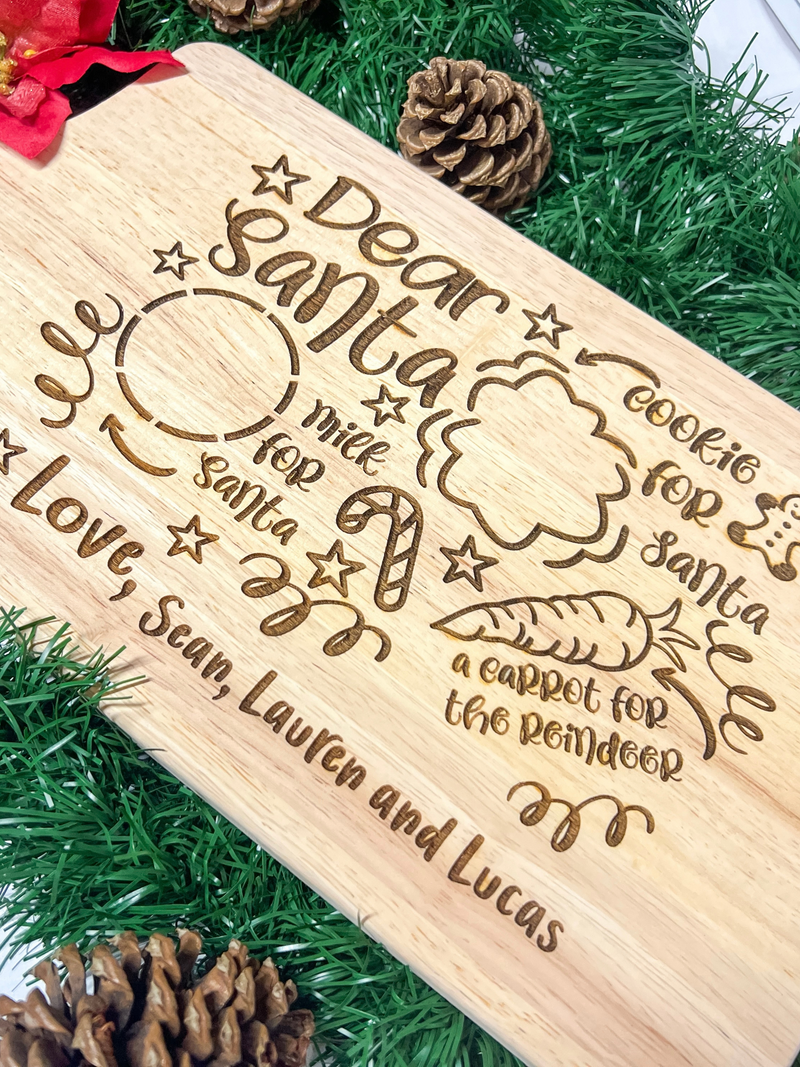 Dear
Santa
milk
for
Santa
cookie
for
Santa
a carrot for
the Reindeer
Love, Sean, Lauren and Lucas